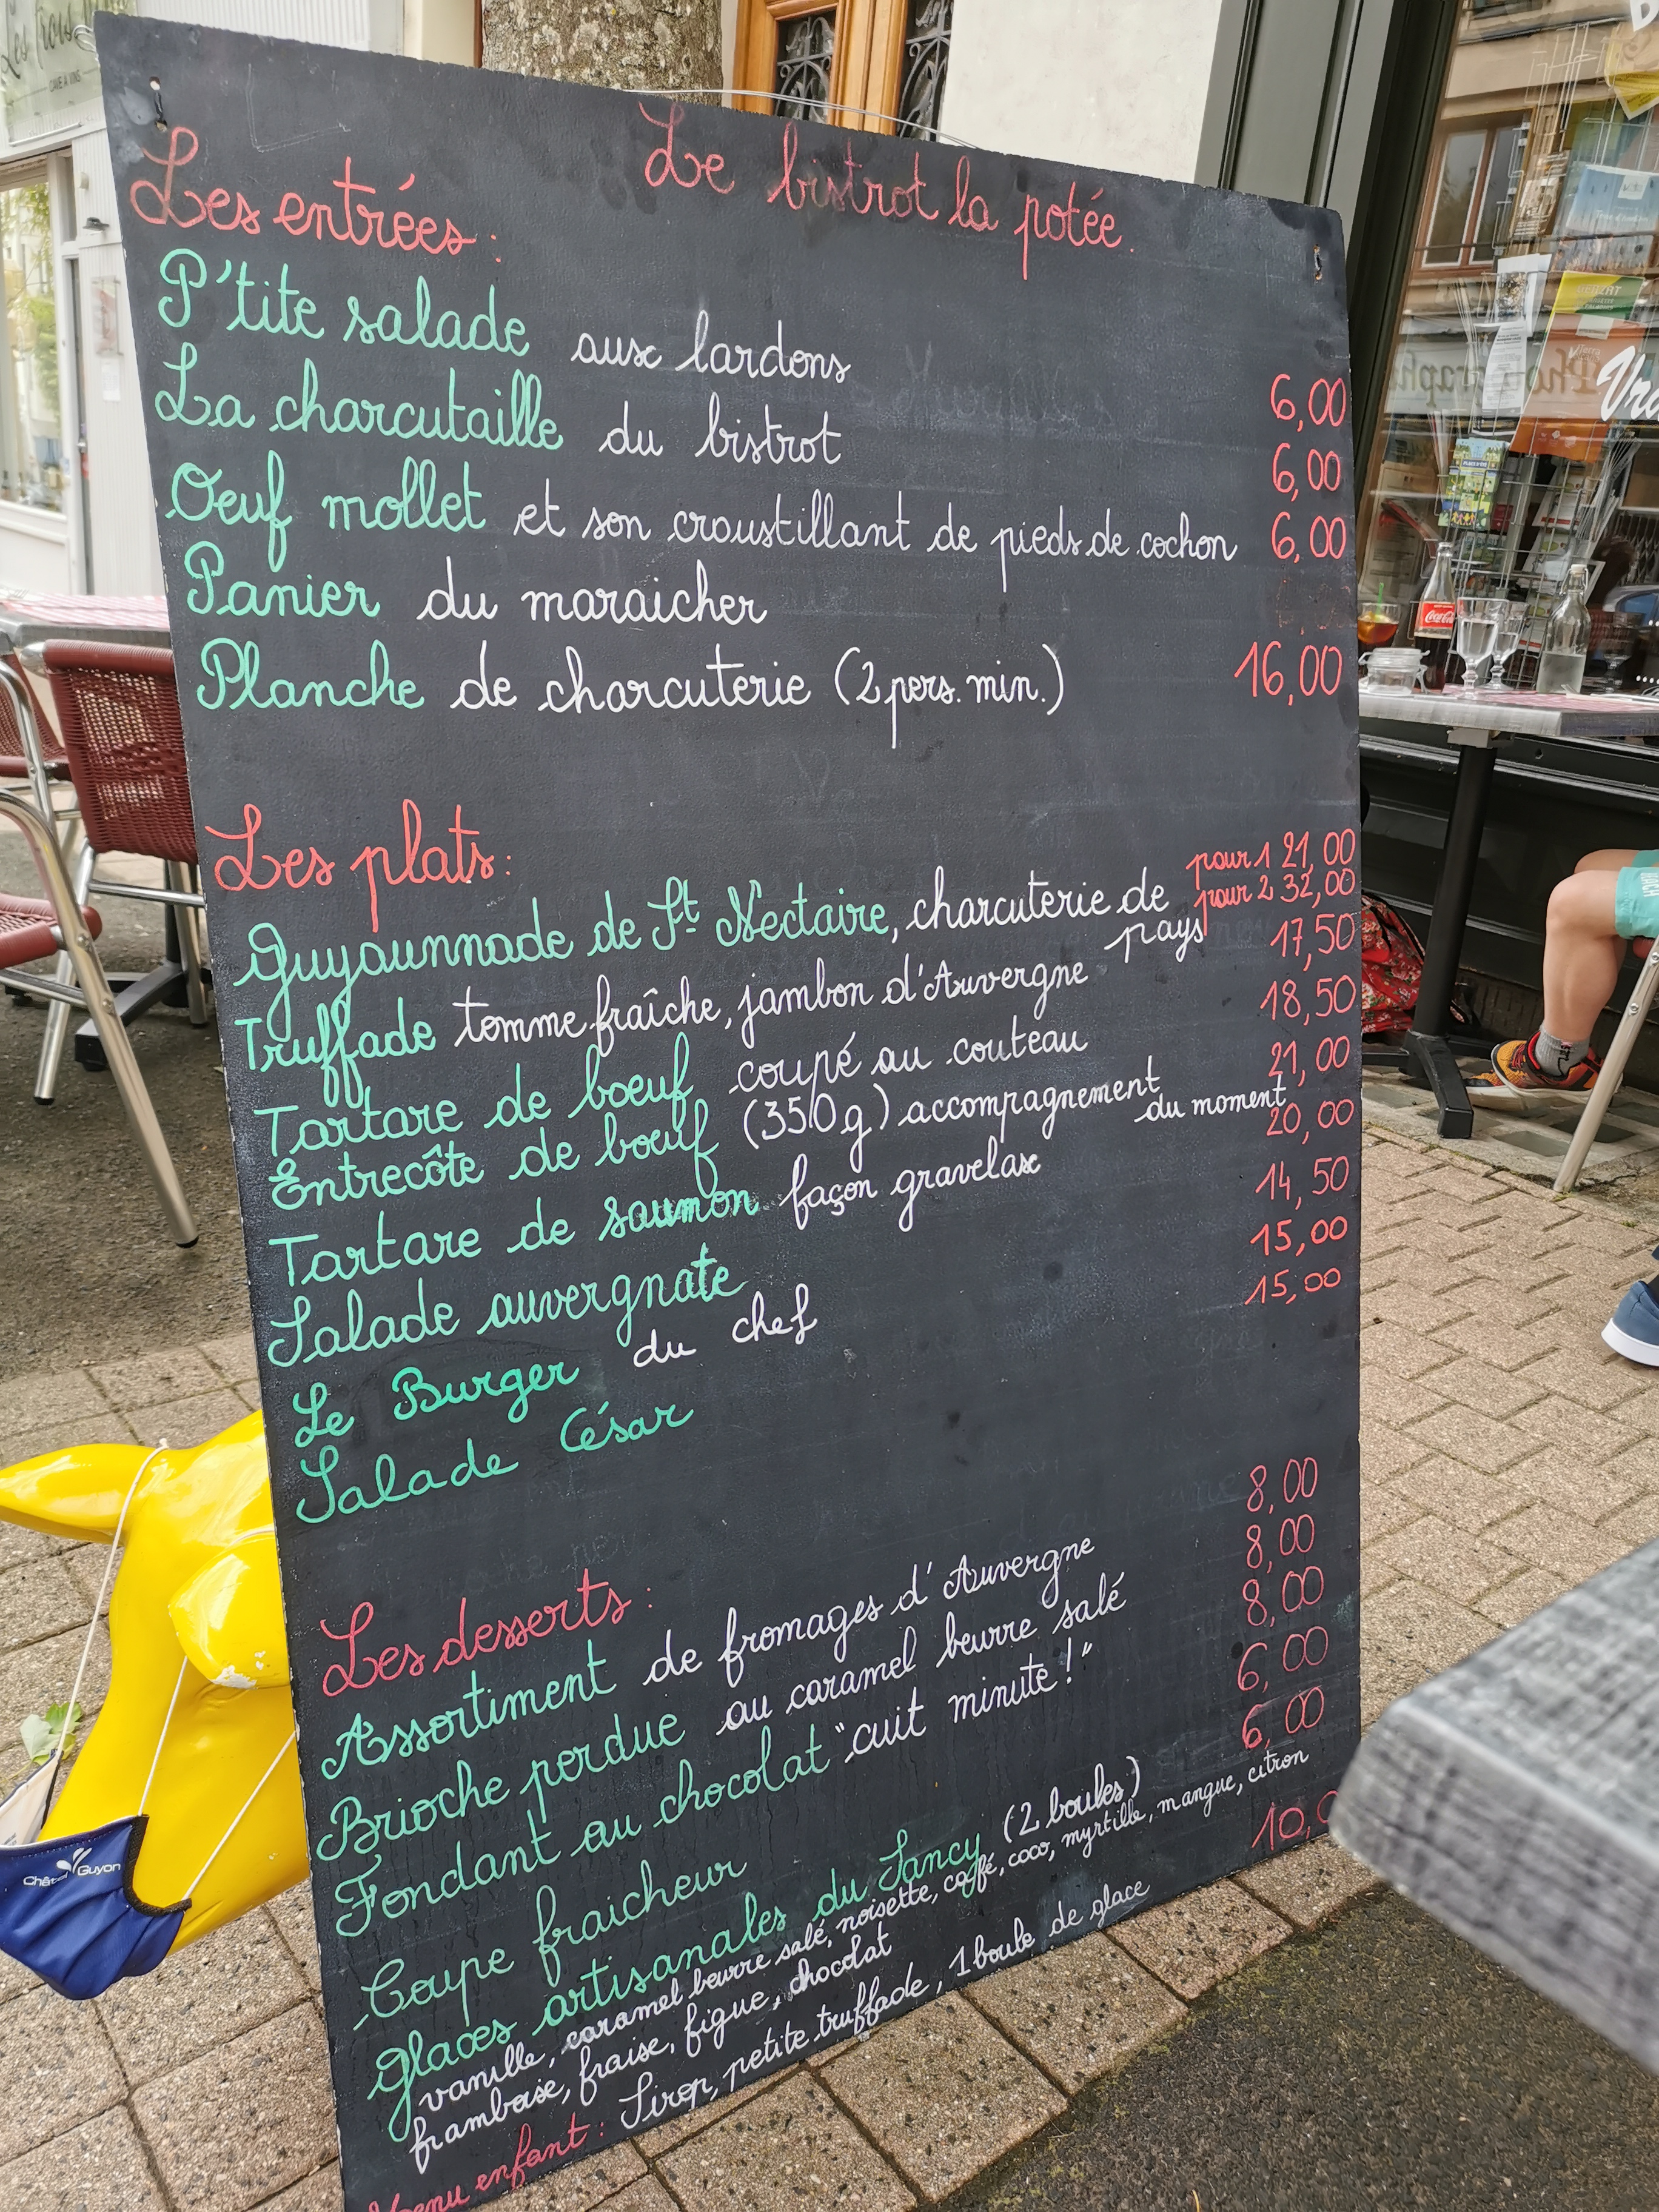 Les Trois
CAVE A VINS
Le bistrot la potée.
Les entrées :
P'tite salade aux lardons 6,00
La charcutaille du bistrot 6,00
Oeuf mollet et son croustillant de pieds de cochon 6,00
Panier du maraicher
Planche de charcuterie (2 pers. min.) 16,00
Les plats :
Guyaunnade de St Nectaire, charcuterie de pays pour 1 21,00
pour 2 32,00
Truffade tomme fraîche, jambon d'Auvergne 17,50
Tartare de boeuf coupé au couteau 18,50
Entrecôte de boeuf (350g) accompagnement du moment 21,00
Tartare de saumon façon gravelax 20,00
Salade auvergnate 14,50
Le Burger du chef 15,00
Salade César 15,00
Les desserts :
Assortiment de fromages d'Auvergne 8,00
Brioche perdue au caramel beurre salé 8,00
Fondant au chocolat "cuit minute !" 8,00
Coupe fraicheur 6,00
Glaces artisanales du Sancy (2 boules) 6,00
vanille, caramel beurre salé, noisette, café, coco, myrtille, mangue, citron
framboise, fraise, figue, chocolat
Menu enfant : Sirop, petite truffade, 1 boule de glace 10,0
Châtel Guyon
Coca-Cola